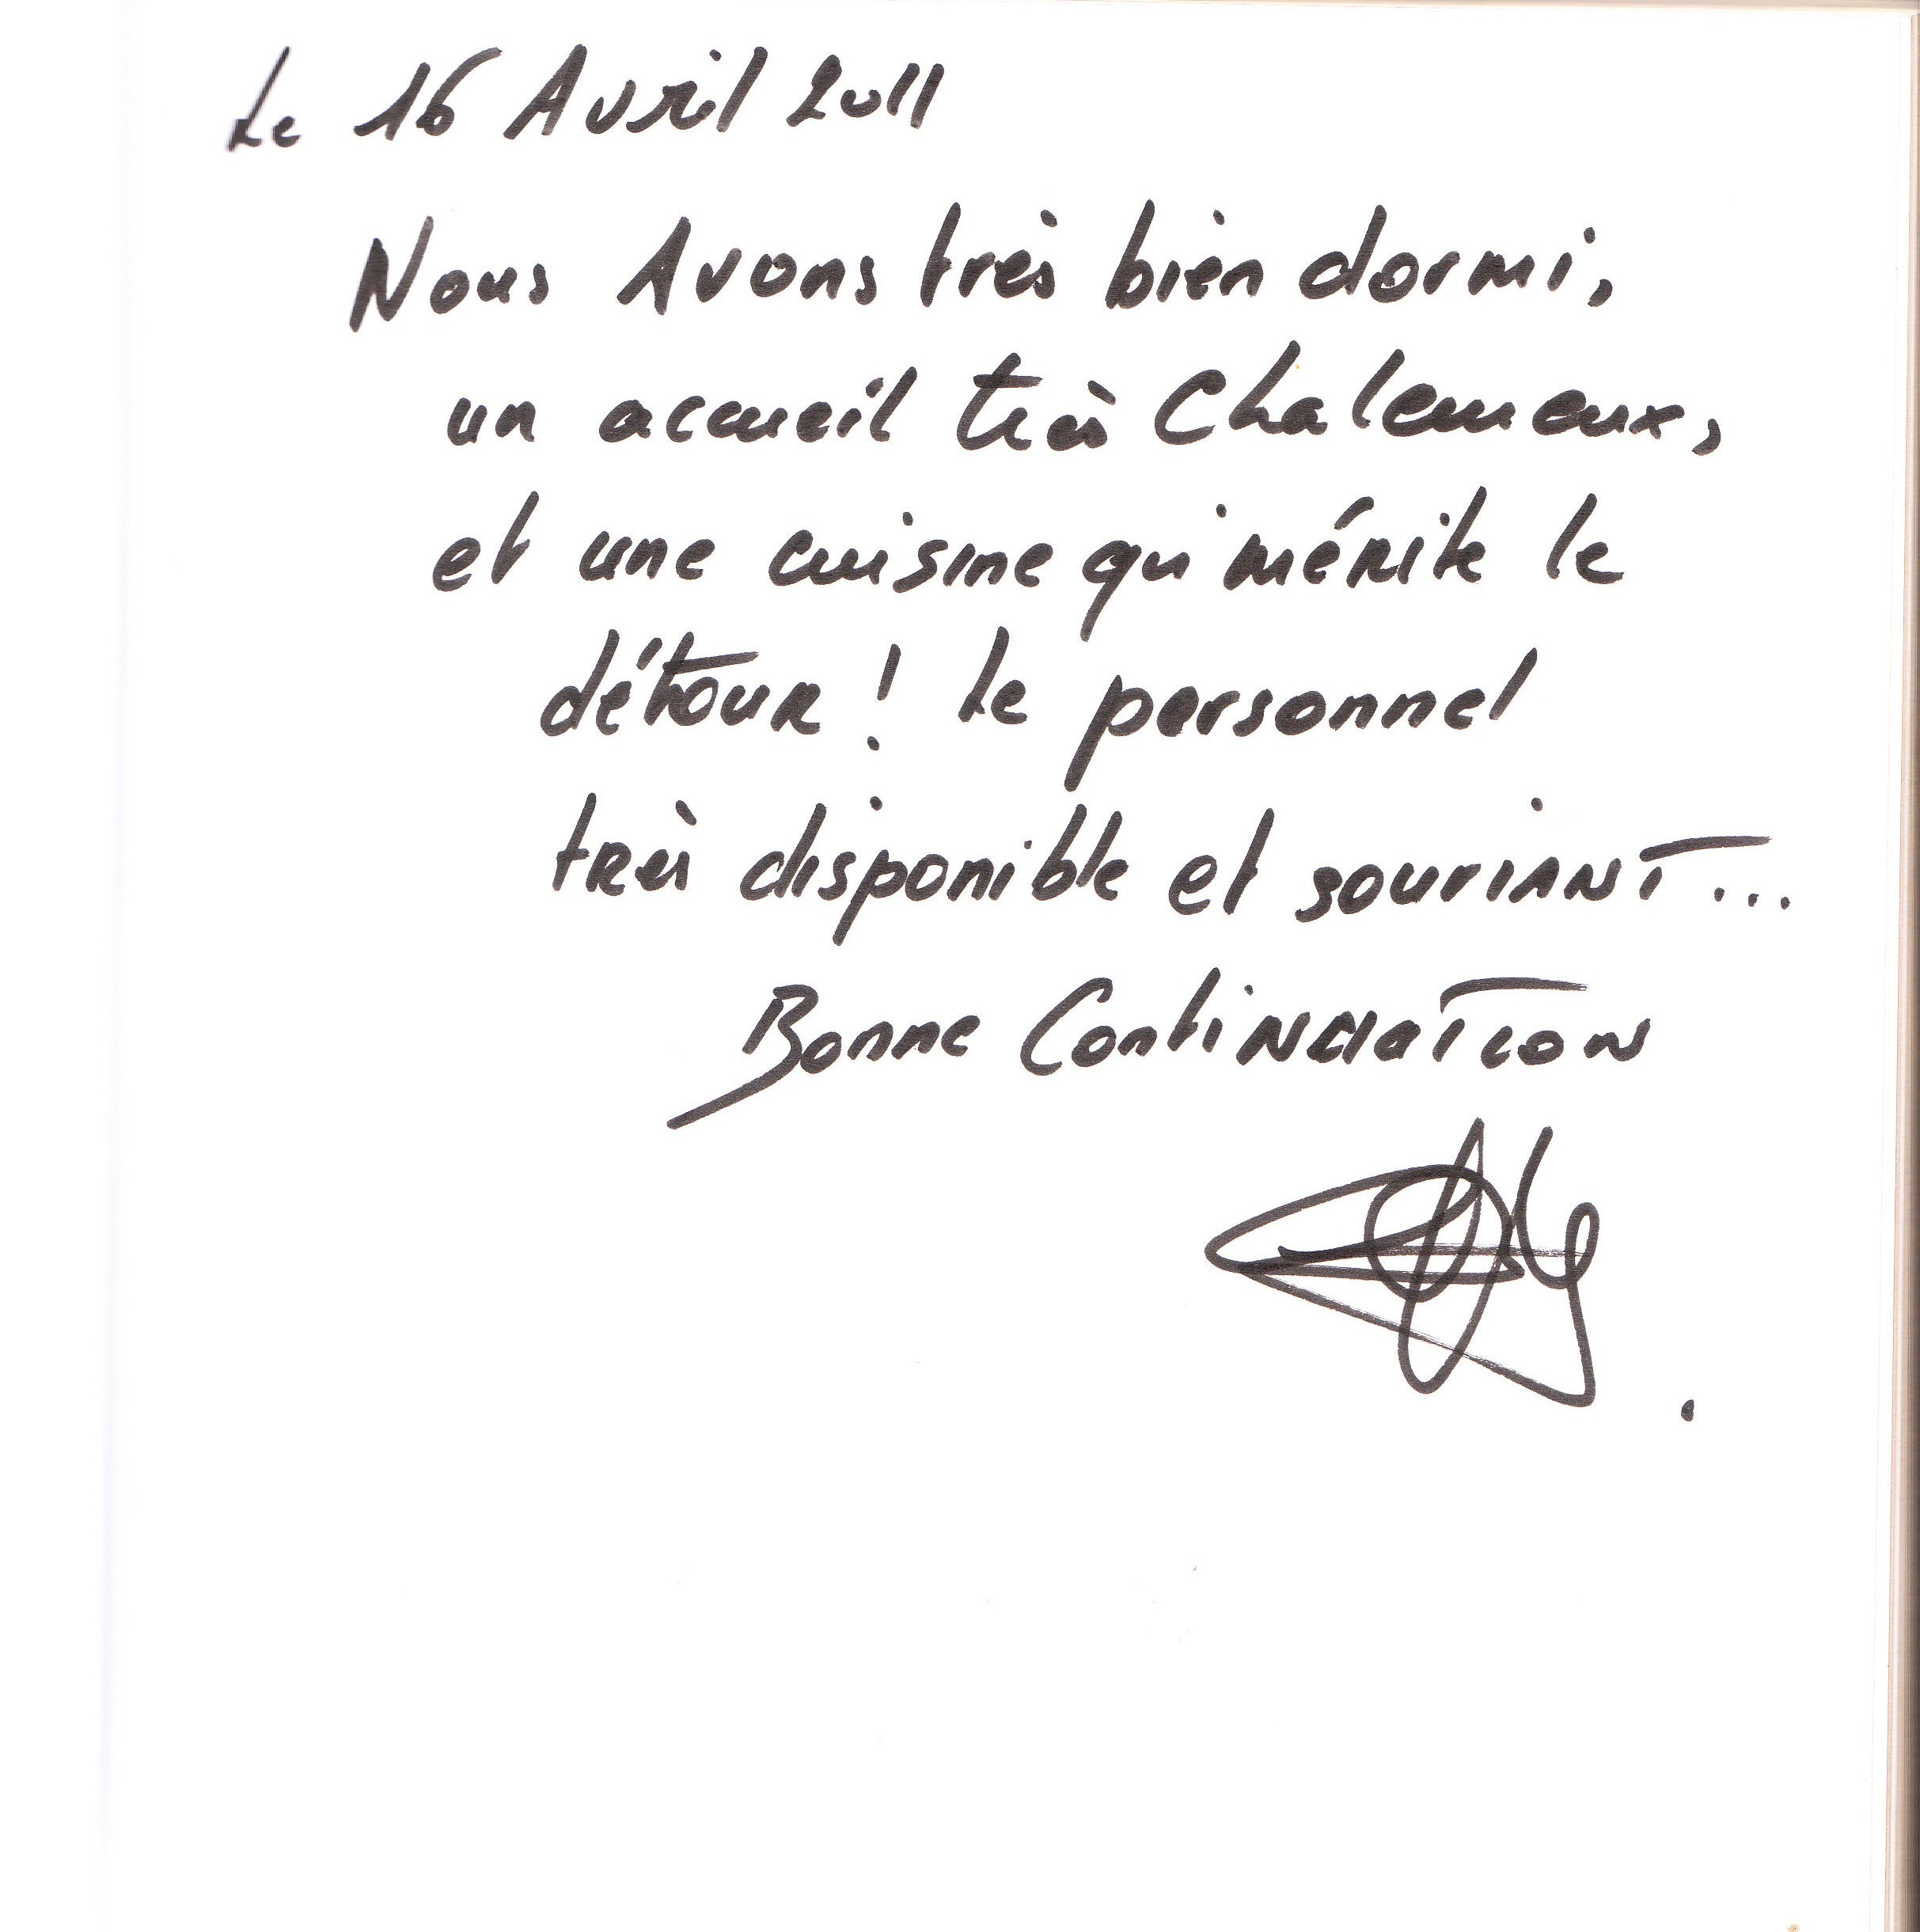 Le 16 Avril 2011
Nous Avons très bien dormi,
un accueil très Chaleureux,
et une cuisine qui mérite le
détour ! Le personnel
très disponible et souriant...
Bonne Continuation